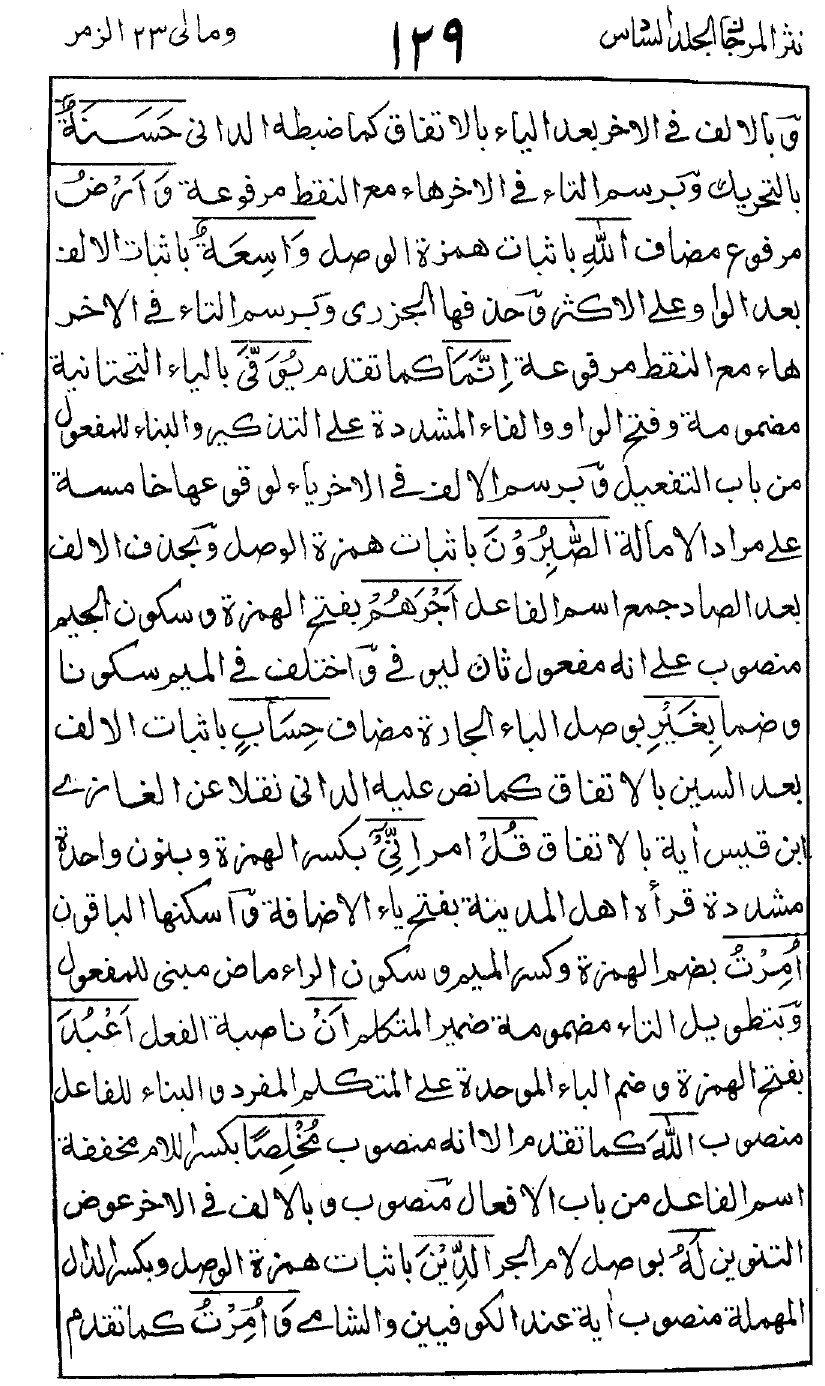 نثر المرجان الجلد السادس ١٢٩ ومالى ٢٣ الزمر
وَّبالالف فى الاخر بعد الياء بالاتفاق كما ضبطه الدانى حَسَنَةٌ
بالتحريك وّبرسم التاء فى الاخر هاء مع النقط مرفوعة وَاَرْضُ
مرفوع مضاف اللّٰهِ باثبات همزة الوصل وَاسِعَةٌ باثبات الالف
بعد الواو على الاكثر وّحذفها الجزرى وّبرسم التاء فى الاخر
هاء مع النقط مرفوعة اِنَّمَا كما تقدم يُوَفَّى بالياء التحتانية
مضمومة وفتح الواو والفاء المشددة على التذكير والبناء للمفعول
من باب التفعيل وّبرسم الالف فى الاخر ياء لوقوعها خامسة
على مراد الامالة الصّٰبِرُوْنَ باثبات همزة الوصل وّبحذف الالف
بعد الصاد جمع اسم الفاعل اَجْرَهُمْ بفتح الهمزة وسكون الجيم
منصوب على انه مفعول ثان ليوفى وّاختلف فى الميم سكونا
وضما بِغَيْرِ بوصل الباء الجارة مضاف حِسَابٍ باثبات الالف
بعد السين بالاتفاق كما نص عليه الدانى نقلا عن الغازے
ابن قيس اٰية بالاتفاق قُلْ امر اِنِّىْٓ بكسر الهمزة وبنون واحدة
مشددة قرأه اهل المدينة بفتح ياء الاضافة وّاسكنها الباقون
اُمِرْتُ بضم الهمزة وكسر الميم وسكون الراء ماض مبنى للمفعول
وّبتطويل التاء مضمومة ضمير المتكلم اَنْ ناصبة الفعل اَعْبُدَ
بفتح الهمزة وضم الباء الموحدة على المتكلم المفرد والبناء للفاعل
منصوب اللّٰهَ كما تقدم الا انه منصوب مُخْلِصًا بكسر اللام مخففة
اسم الفاعل من باب الافعال منصوب وبالالف فى الاخر عوض
التنوين لَهُ بوصل لام الجر الدِّيْنَ باثبات همزة الوصل وبكسر الدال
المهملة منصوب اٰية عند الكوفيين والشامے وَاُمِرْتُ كما تقدم